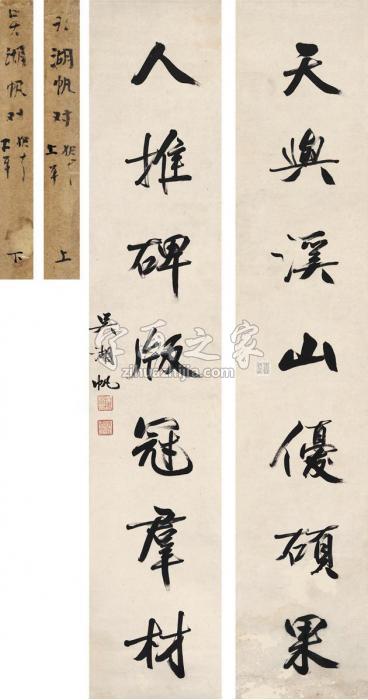 天與溪山優碩果
人推碑版冠羣材
吳湖帆
吴湖帆对
上
吴湖帆对
下
字画之家
zihuazhijia.com